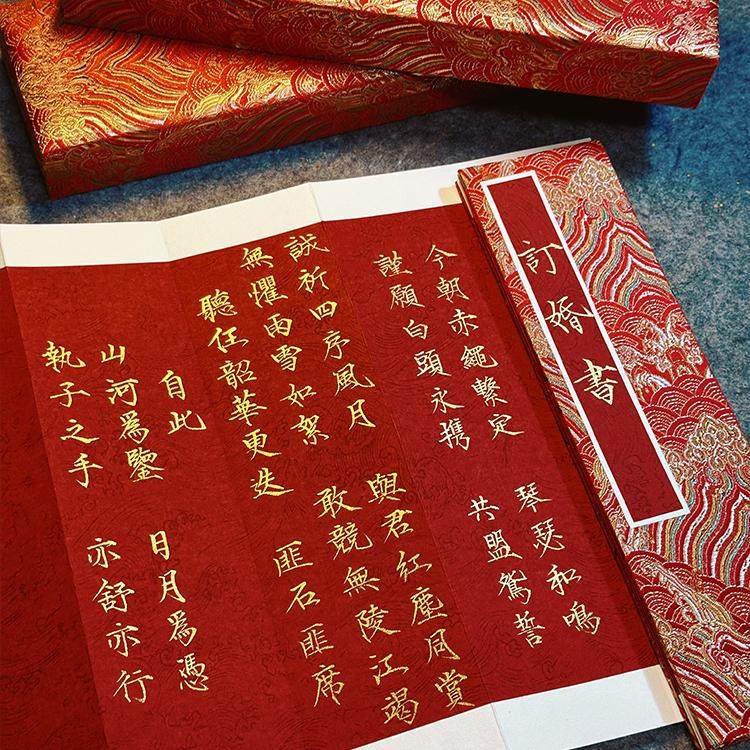 訂婚書
今朝赤繩繫定 琴瑟和鳴
謹願白頭永携 共盟鴛誓
誠祈四序風月 與君紅塵同賞
無懼雨雪如絮 敢競無陵江竭
聽任韶華更迭 匪石匪席
自此
山河為鑒 日月為憑
執子之手 亦舒亦行